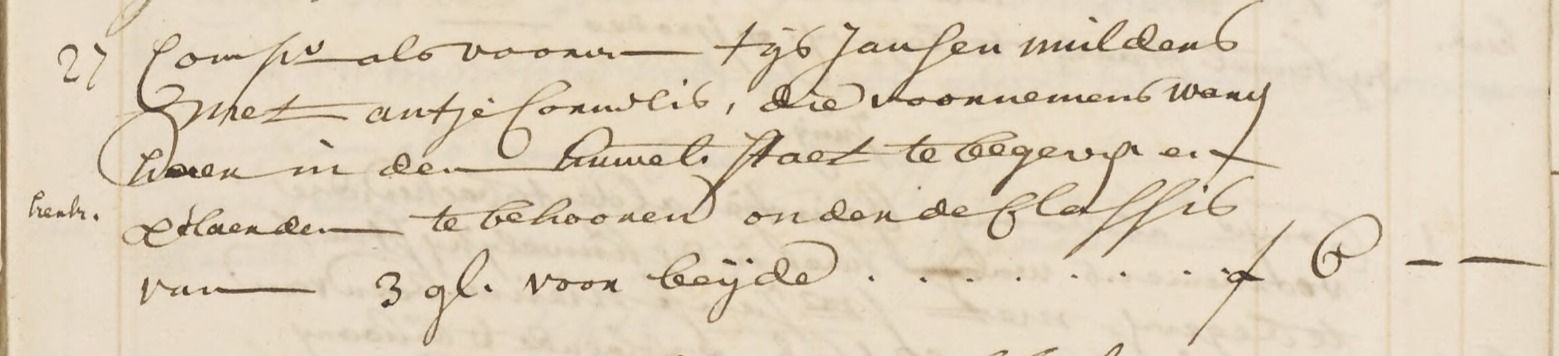 27 Compt als vooren Tijs Jansen mulders
met antje Cornelis, die voornemens waren
haer in den huwel. staet te begeven en
verklaerden te behooren onder de Classis
van 3 gl. voor beijde . . . . . . . f 6 — —